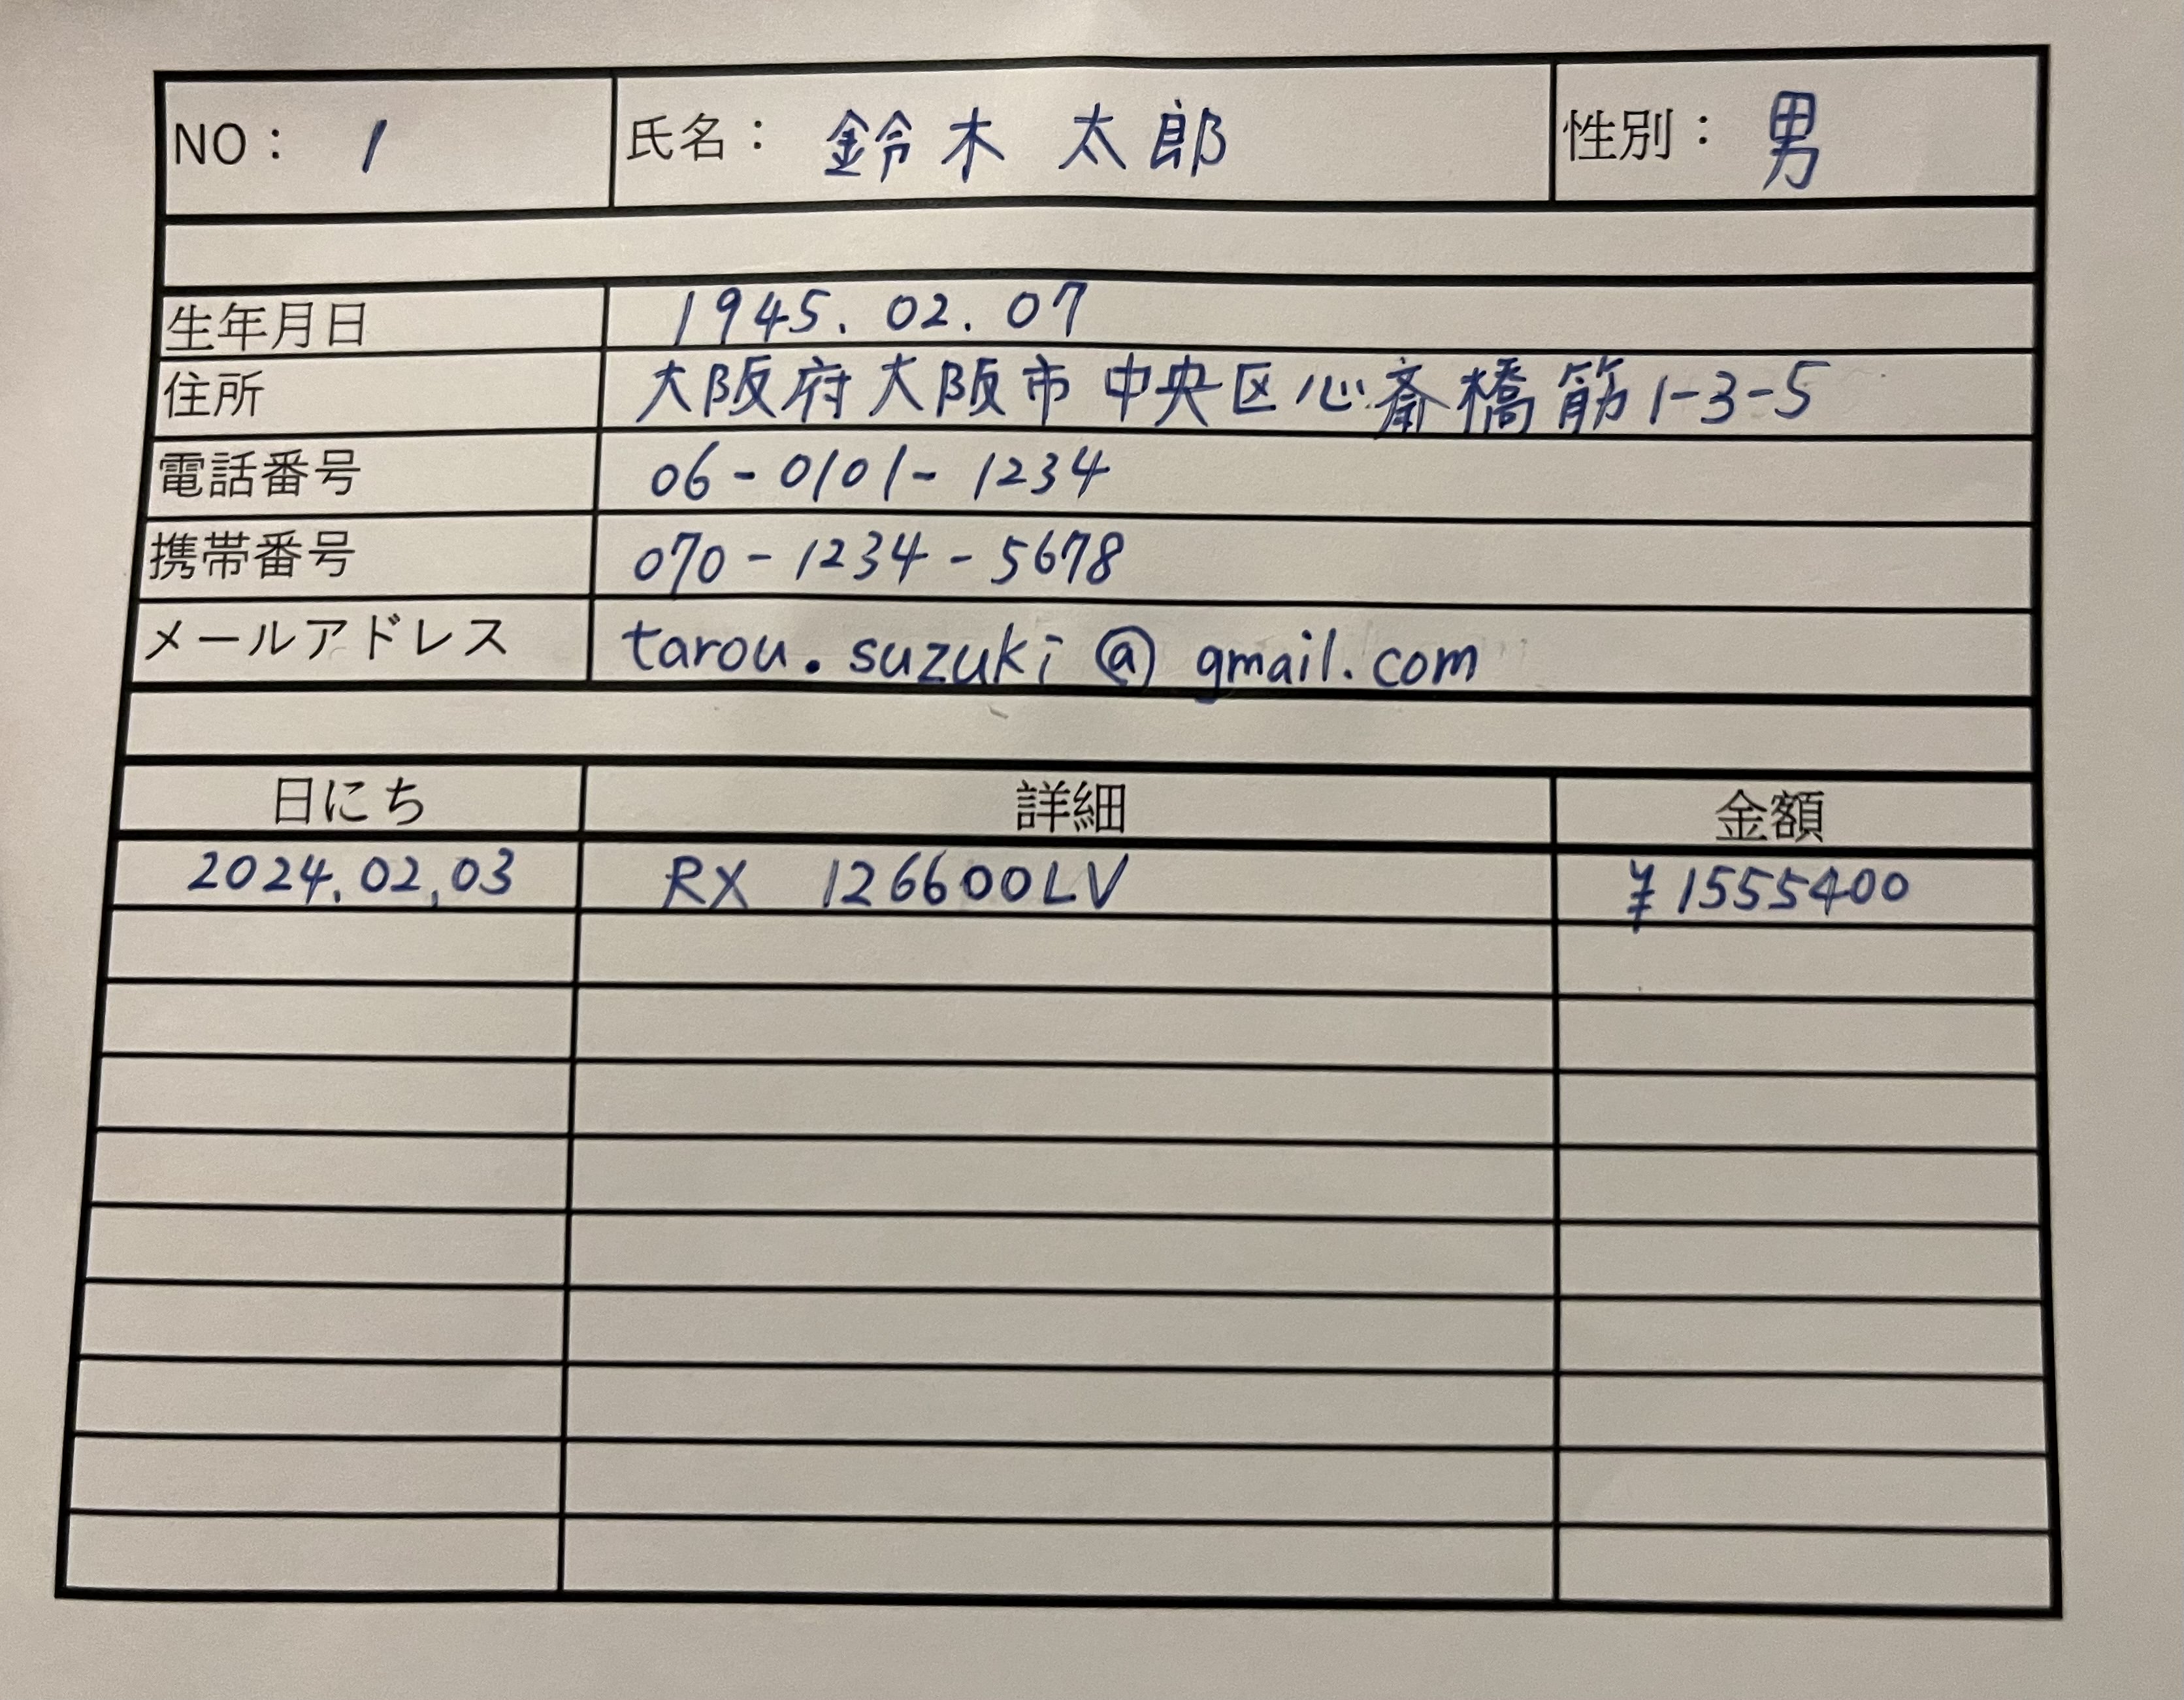 NO： 1 氏名： 鈴木 太郎 性別： 男
生年月日 1945.02.07
住所 大阪府大阪市中央区心斎橋筋1-3-5
電話番号 06-0101-1234
携帯番号 070-1234-5678
メールアドレス tarou.suzuki@gmail.com
日にち 詳細 金額
2024.02.03 RX 126600LV ¥1555400